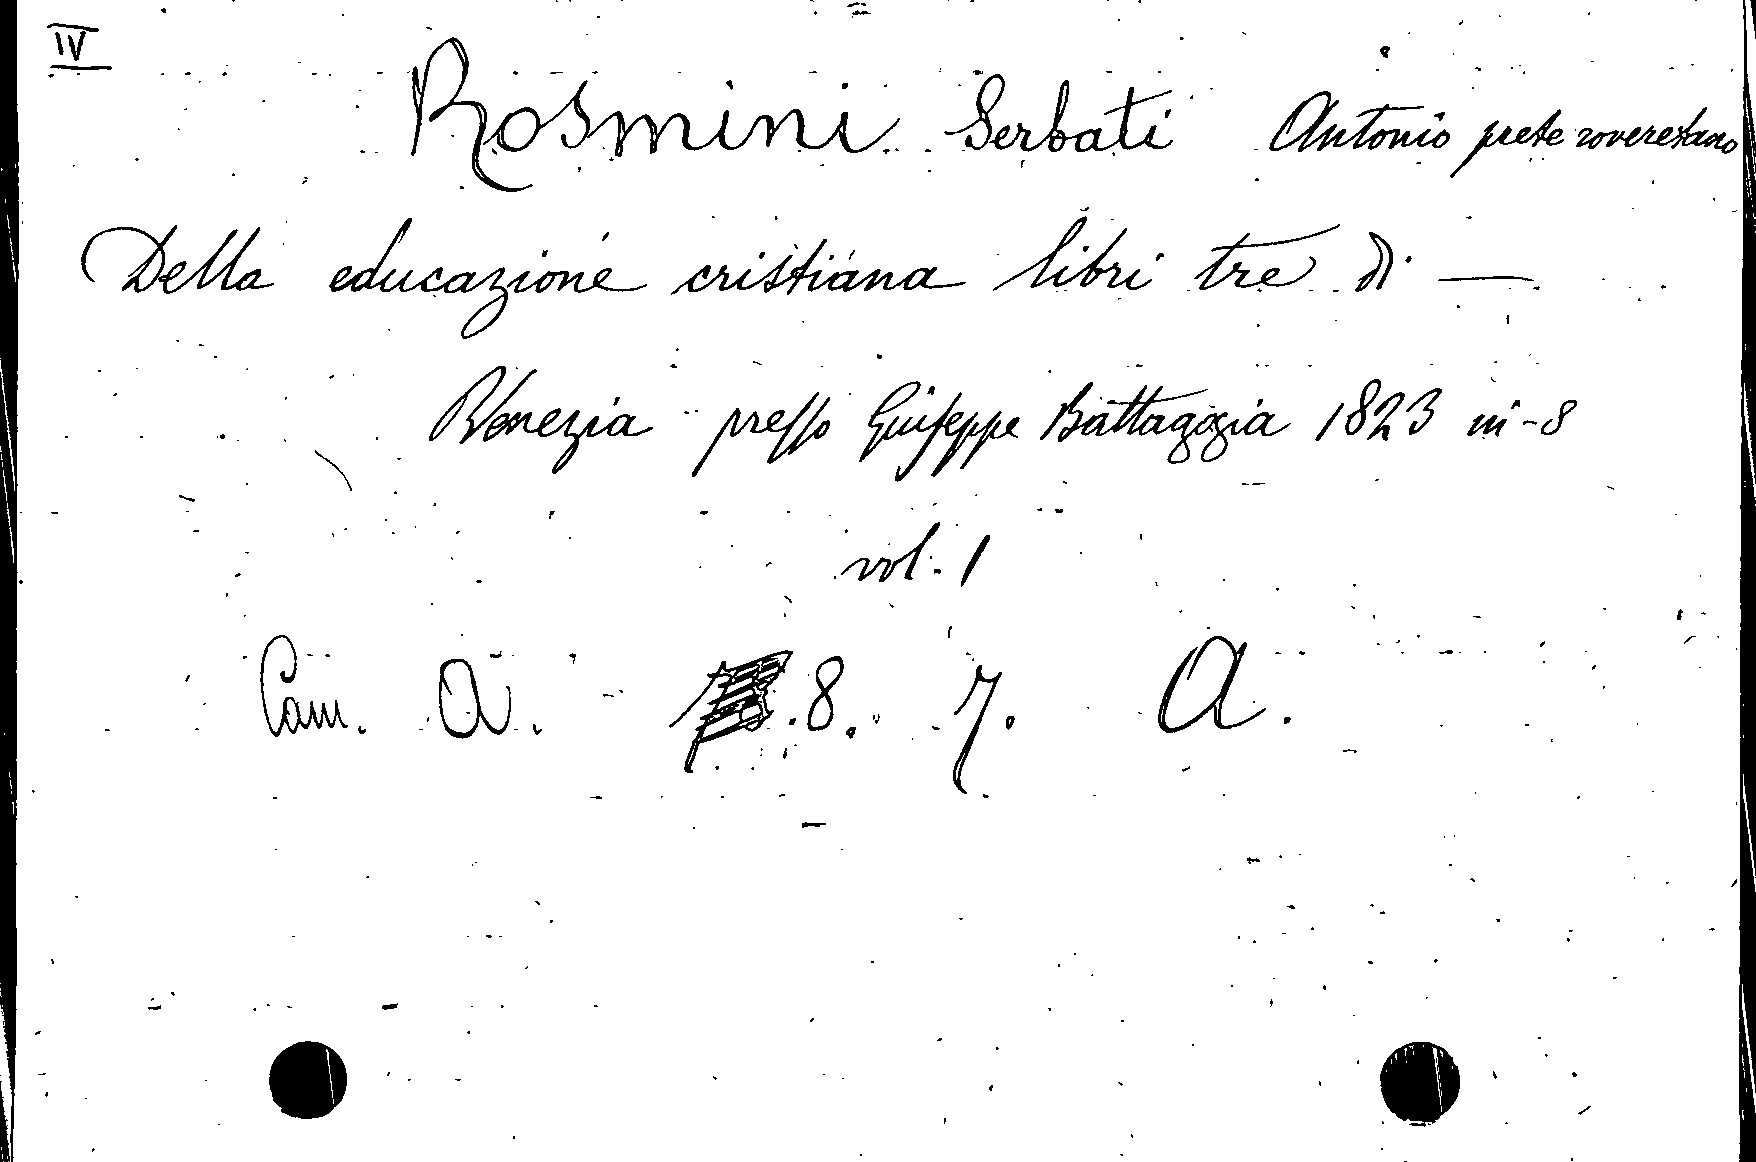 IV
Rosmini Serbati Antonio prete roveretano
Della educazione cristiana libri tre di —
Venezia presso Giuseppe Battaggia 1823 in-8
vol. 1
Cam. A. .8. 7. A.